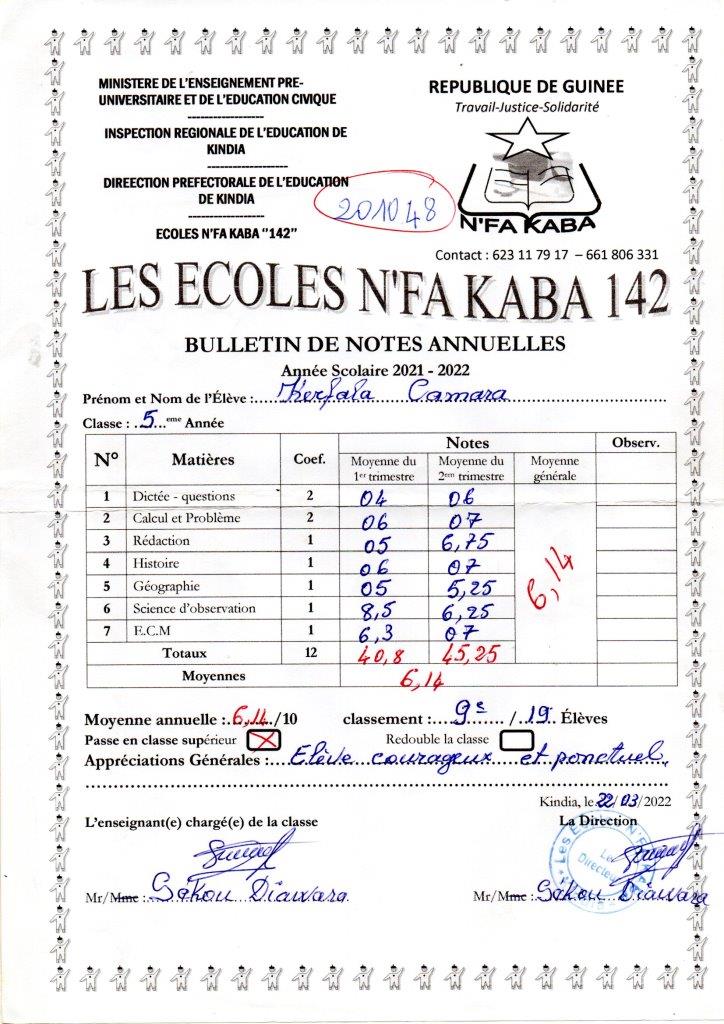 MINISTERE DE L'ENSEIGNEMENT PRE-
UNIVERSITAIRE ET DE L'EDUCATION CIVIQUE
-------------------
INSPECTION REGIONALE DE L'EDUCATION DE
KINDIA
--------------------
DIREECTION PREFECTORALE DE L'EDUCATION
DE KINDIA
-------------------
ECOLES N'FA KABA "142"
REPUBLIQUE DE GUINEE
Travail-Justice-Solidarité
N'FA KABA
201048
Contact : 623 11 79 17 – 661 806 331
LES ECOLES N'FA KABA 142
BULLETIN DE NOTES ANNUELLES
Année Scolaire 2021 - 2022
Prénom et Nom de l'Élève : Kerfala Camara
Classe : 5 eme Année
N° Matières Coef. Notes Observ.
Moyenne du 1er trimestre Moyenne du 2em trimestre Moyenne générale
1 Dictée - questions 2 04 06
2 Calcul et Problème 2 06 07
3 Rédaction 1 05 6,75
4 Histoire 1 06 07
5 Géographie 1 05 5,25
6 Science d'observation 1 8,5 6,25
7 E.C.M 1 6,3 07
6,14
Totaux 12 40,8 45,25
Moyennes 6,14
Moyenne annuelle : 6,14 /10 classement : 9e / 19 Élèves
Passe en classe supérieur Redouble la classe
Appréciations Générales : Elève courageux et ponctuel.
Kindia, le 22/03/2022
L'enseignant(e) chargé(e) de la classe La Direction
Mr/Mme : Sékou Diawara Mr/Mme : Sékou Diawara